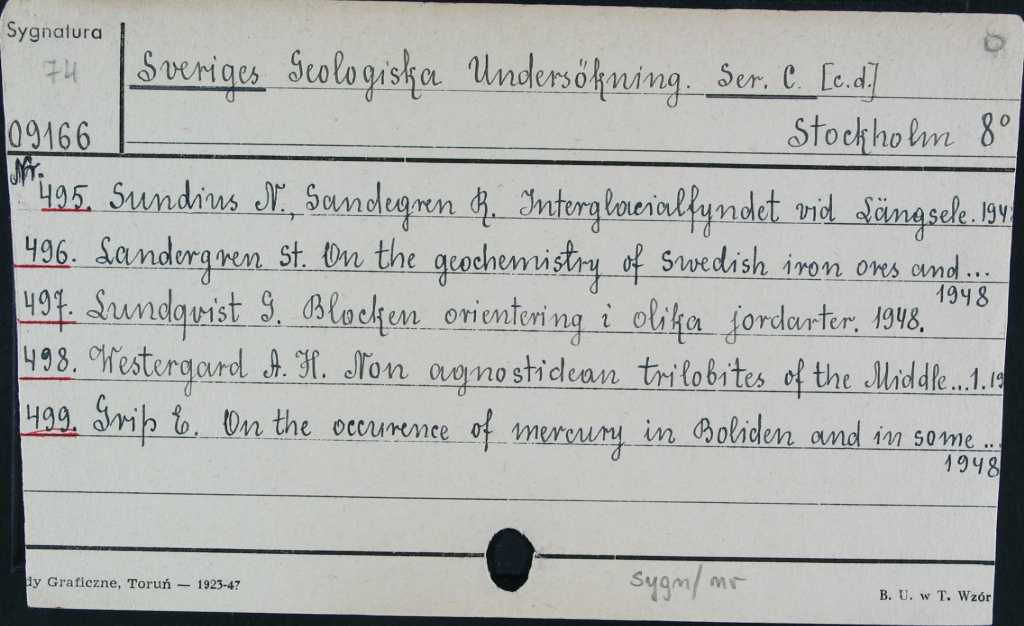 Sygnatura
74
Sveriges Geologiska Undersökning. Ser. C. [c.d.]
09166
Stockholm 8°
Nr.
495. Sundius N., Sandegren R. Interglacialfyndet vid Längsele. 194
496. Landergren St. On the geochemistry of Swedish iron ores and...
1948
497. Lundqvist G. Blocken orientering i olika jordarter. 1948.
498. Westergard A. H. Non agnostidean trilobites of the Middle...1.19
499. Grip E. On the occurence of mercury in Boliden and in some ...
1948
dy Graficzne, Toruń — 1923-47
sygn/nr
B. U. w T. Wzór